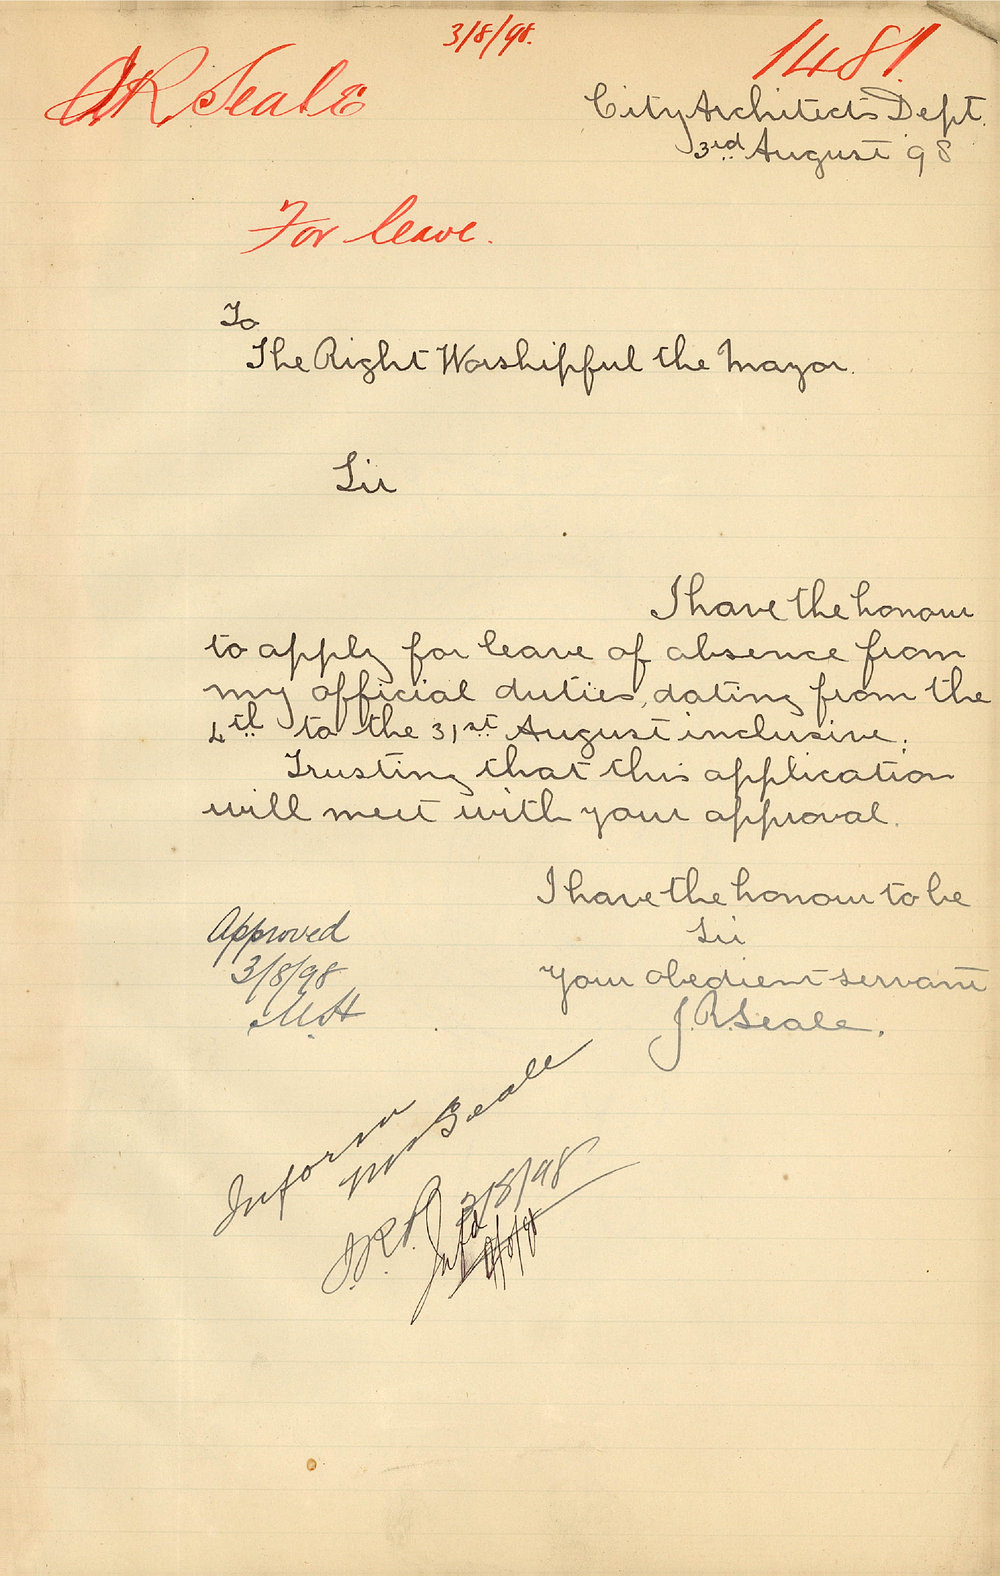 3/8/98.
1481.
JR Seale
City Architects Dept.
3rd August 98
For leave.
To
The Right Worshipful the Mayor.
Sir
I have the honour
to apply for leave of absence from
my official duties, dating from the
4th to the 31st August inclusive;
Trusting that this application
will meet with your approval.
I have the honour to be
Sir
Your obedient servant
J. R. Seale.
Approved
3/8/98
M.H
Inform
Mr Seale
3/8/98
Infd